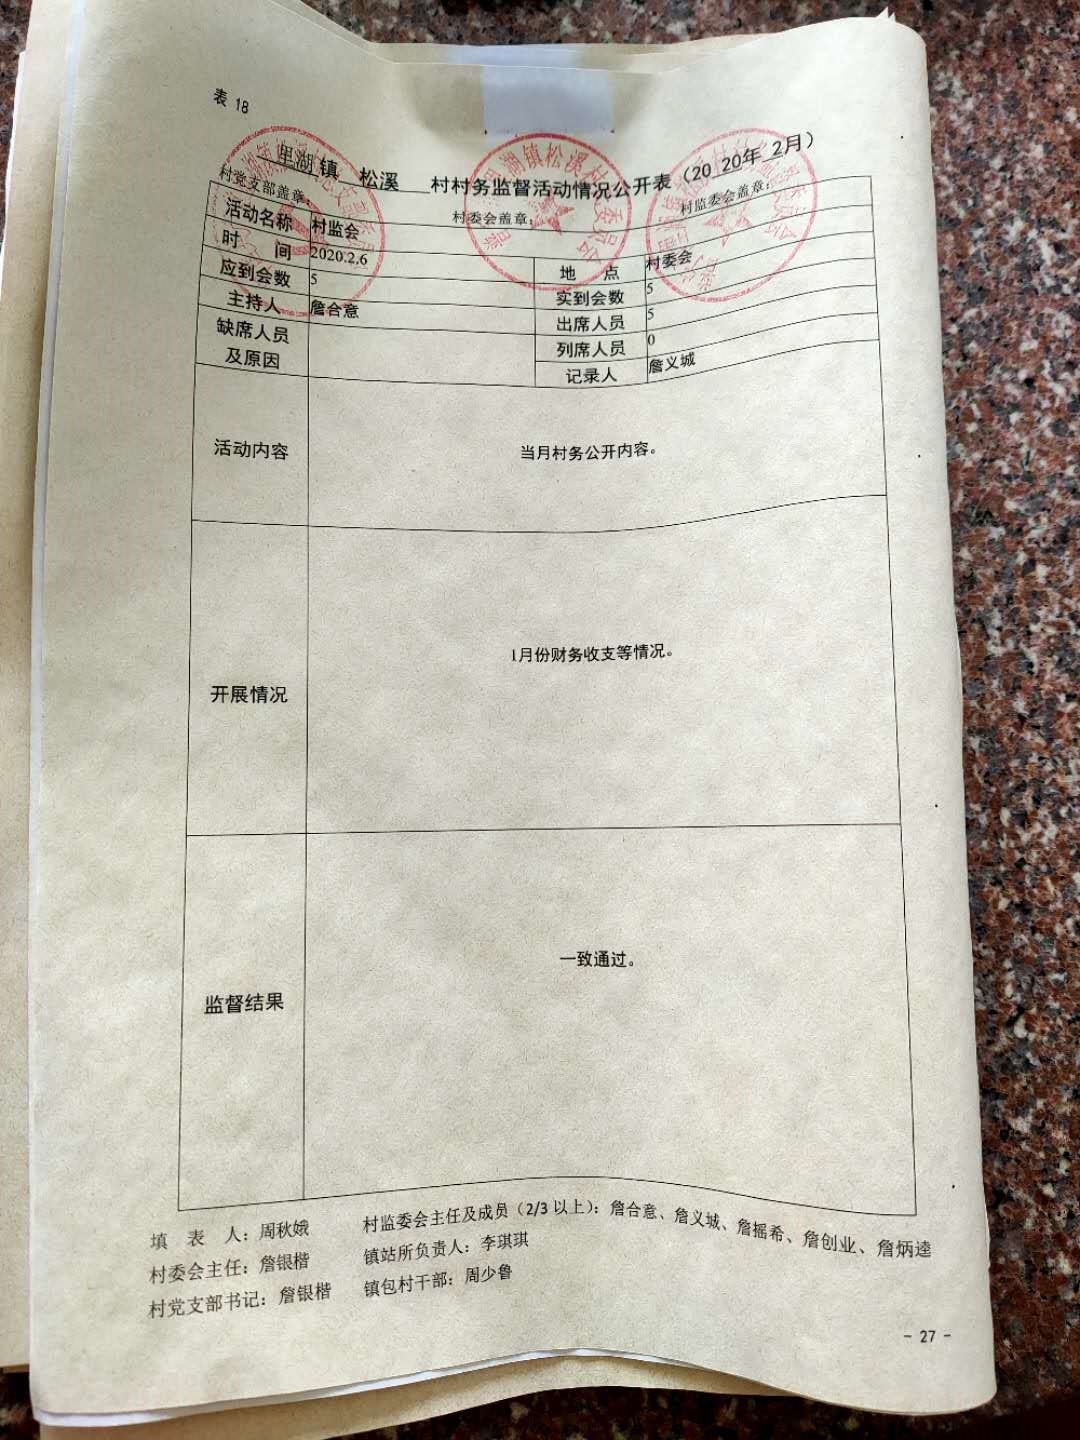 表 18
里湖 镇 松溪 村村务监督活动情况公开表（20 20年 2月）
村党支部盖章： 村委会盖章： 村监委会盖章：
活动名称 村监会
时 间 2020.2.6 地 点 村委会
应到会数 5 实到会数 5
主持人 詹合意 出席人员 5
缺席人员及原因 列席人员 0
记录人 詹义城
活动内容 当月村务公开内容。
开展情况 1月份财务收支等情况。
监督结果 一致通过。
填 表 人：周秋娥 村监委会主任及成员（2/3 以上）：詹合意、詹义城、詹摇希、詹创业、詹炳逵
村委会主任：詹银楷 镇站所负责人：李琪琪
村党支部书记：詹银楷 镇包村干部：周少鲁
- 27 -